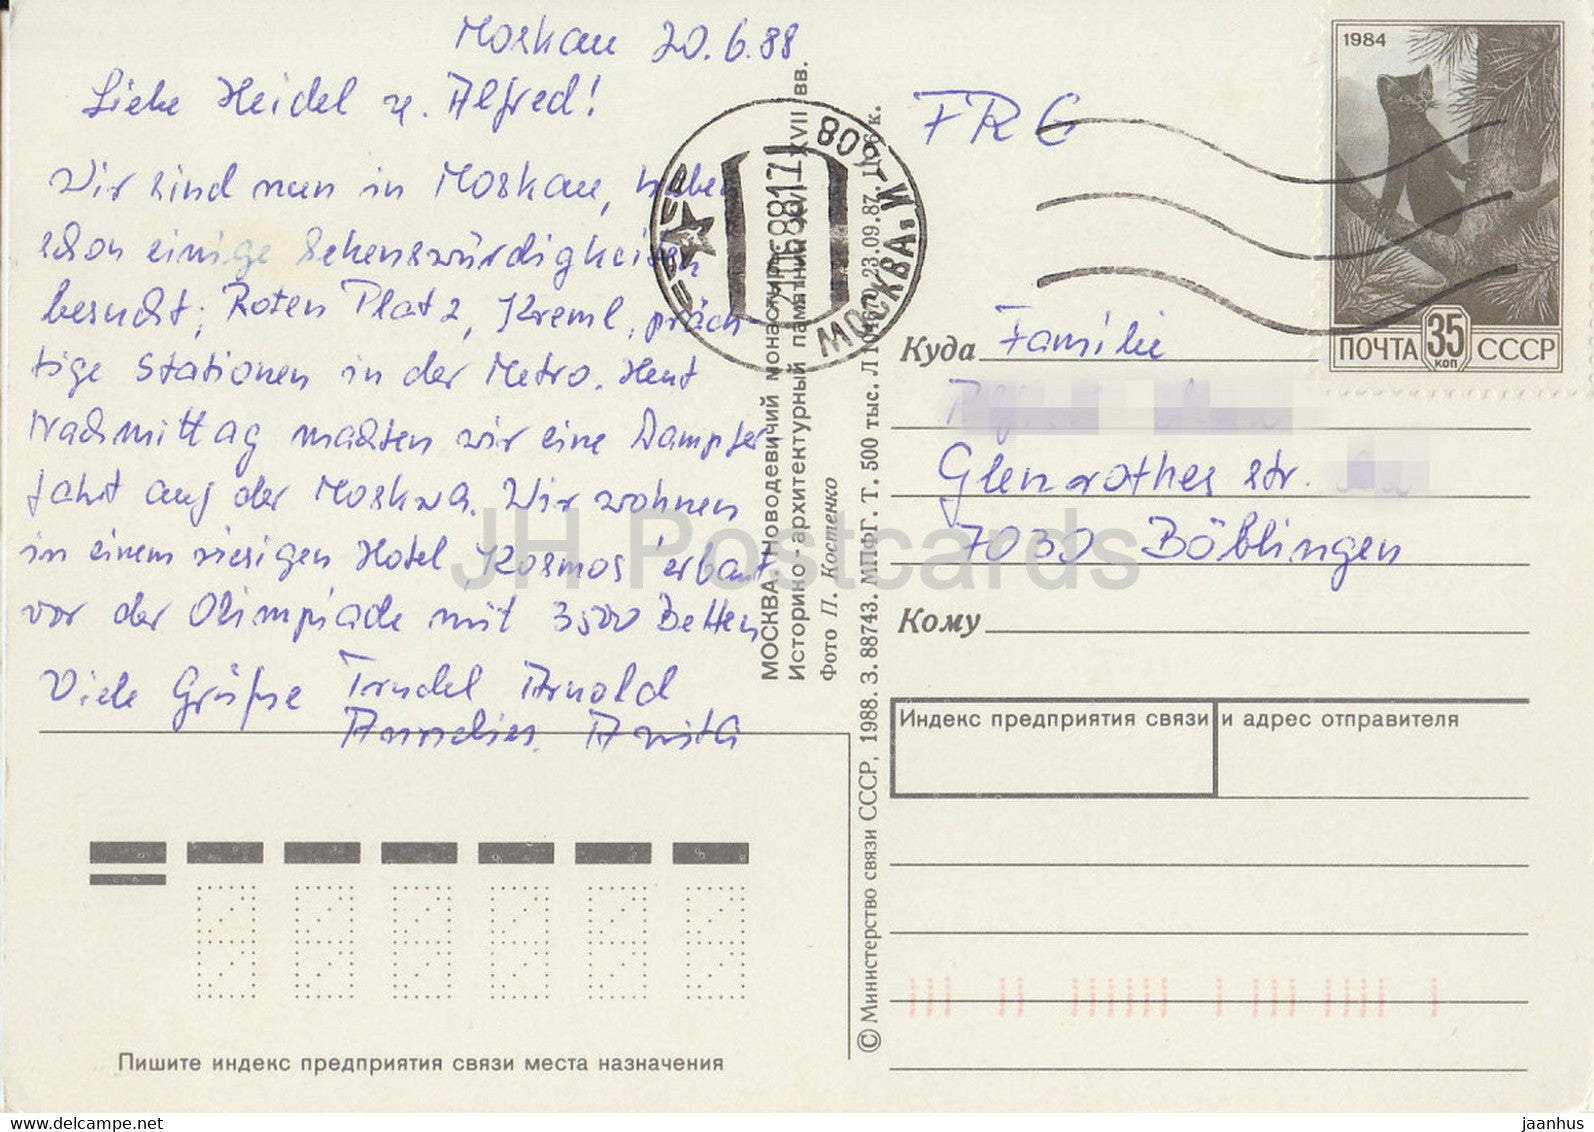 Moskau 20.6.88
Liebe Heidel u. Alfred!
Wir sind nun in Moskau, haben
schon einige Sehenswürdigkeiten
besucht; Roten Platz, Kreml, präch-
tige Stationen in der Metro. Heut
Nachmittag machten wir eine Dampfer
fahrt auf der Moskwa. Wir wohnen
in einem riesigen Hotel Kosmos erbaut
vor der Olimpiade mit 3500 Betten
Viele Grüße Trudel Arnold
Anita
Пишите индекс предприятия связи места назначения
МОСКВА. Новодевичий монастырь
Историко-архитектурный памятник XVI–XVII вв.
Фото П. Костенко
© Министерство связи СССР, 1988. З. 88743. МПФГ. Т. 500 тыс. 23.09.87.
МОСКВА
1984
ПОЧТА 35 СССР
коп
FRG
Куда Familie
Glenrothes str.
7030 Böblingen
Кому
Индекс предприятия связи и адрес отправителя
JH Postcards
www.delcampe.net
jaanhus